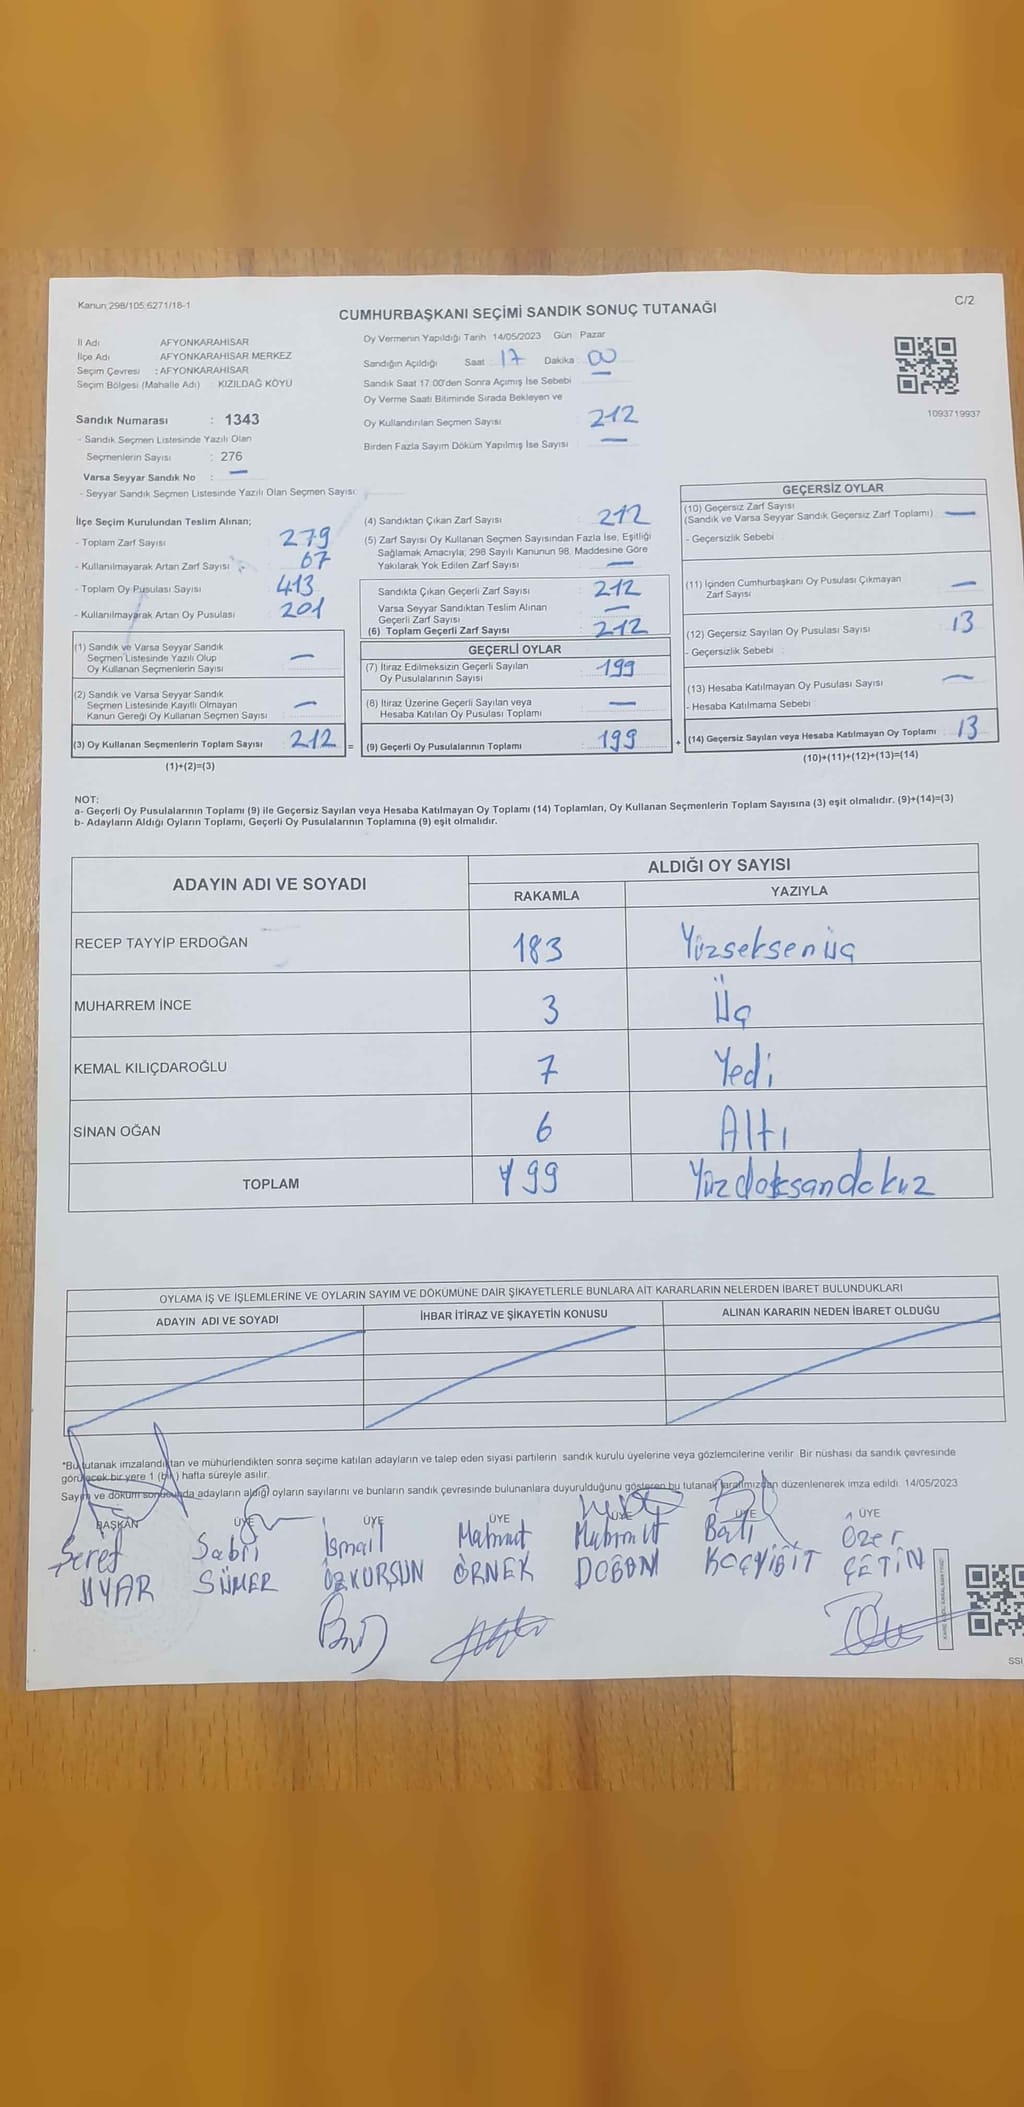 Kanun 298/105,6271/18-1
C/2
CUMHURBAŞKANI SEÇİMİ SANDIK SONUÇ TUTANAĞI
İl Adı AFYONKARAHİSAR
İlçe Adı AFYONKARAHİSAR MERKEZ
Seçim Çevresi : AFYONKARAHİSAR
Seçim Bölgesi (Mahalle Adı) KIZILDAĞ KÖYÜ
Sandık Numarası : 1343
- Sandık Seçmen Listesinde Yazılı Olan
Seçmenlerin Sayısı : 276
Varsa Seyyar Sandık No : —
- Seyyar Sandık Seçmen Listesinde Yazılı Olan Seçmen Sayısı:
Oy Vermenin Yapıldığı Tarih 14/05/2023 Gün : Pazar
Sandığın Açıldığı Saat : 17 Dakika : 00
Sandık Saat 17.00'den Sonra Açımış İse Sebebi —
Oy Verme Saati Bitiminde Sırada Bekleyen ve
Oy Kullandırılan Seçmen Sayısı 212
Birden Fazla Sayım Döküm Yapılmış İse Sayısı —
1093719937
İlçe Seçim Kurulundan Teslim Alınan;
- Toplam Zarf Sayısı 279
- Kullanılmayarak Artan Zarf Sayısı 67
- Toplam Oy Pusulası Sayısı 413
- Kullanılmayarak Artan Oy Pusulası 201
(1) Sandık ve Varsa Seyyar Sandık
Seçmen Listesinde Yazılı Olup
Oy Kullanan Seçmenlerin Sayısı —
(2) Sandık ve Varsa Seyyar Sandık
Seçmen Listesinde Kayıtlı Olmayan
Kanun Gereği Oy Kullanan Seçmen Sayısı —
(3) Oy Kullanan Seçmenlerin Toplam Sayısı 212 =
(1)+(2)=(3)
(4) Sandıktan Çıkan Zarf Sayısı : 212
(5) Zarf Sayısı Oy Kullanan Seçmen Sayısından Fazla İse, Eşitliği
Sağlamak Amacıyla; 298 Sayılı Kanunun 98. Maddesine Göre
Yakılarak Yok Edilen Zarf Sayısı —
Sandıkta Çıkan Geçerli Zarf Sayısı : 212
Varsa Seyyar Sandıktan Teslim Alınan
Geçerli Zarf Sayısı —
(6) Toplam Geçerli Zarf Sayısı : 212
GEÇERLİ OYLAR
(7) İtiraz Edilmeksizin Geçerli Sayılan
Oy Pusulalarının Sayısı : 199
(8) İtiraz Üzerine Geçerli Sayılan veya
Hesaba Katılan Oy Pusulası Toplamı —
(9) Geçerli Oy Pusulalarının Toplamı : 199 +
GEÇERSİZ OYLAR
(10) Geçersiz Zarf Sayısı
(Sandık ve Varsa Seyyar Sandık Geçersiz Zarf Toplamı) —
- Geçersizlik Sebebi :
(11) İçinden Cumhurbaşkanı Oy Pusulası Çıkmayan
Zarf Sayısı —
(12) Geçersiz Sayılan Oy Pusulası Sayısı : 13
- Geçersizlik Sebebi :
(13) Hesaba Katılmayan Oy Pusulası Sayısı —
- Hesaba Katılmama Sebebi :
(14) Geçersiz Sayılan veya Hesaba Katılmayan Oy Toplamı : 13
(10)+(11)+(12)+(13)=(14)
NOT:
a- Geçerli Oy Pusulalarının Toplamı (9) ile Geçersiz Sayılan veya Hesaba Katılmayan Oy Toplamı (14) Toplamları, Oy Kullanan Seçmenlerin Toplam Sayısına (3) eşit olmalıdır. (9)+(14)=(3)
b- Adayların Aldığı Oyların Toplamı, Geçerli Oy Pusulalarının Toplamına (9) eşit olmalıdır.
ADAYIN ADI VE SOYADI
ALDIĞI OY SAYISI
RAKAMLA YAZIYLA
RECEP TAYYİP ERDOĞAN 183 Yüzseksenüç
MUHARREM İNCE 3 Üç
KEMAL KILIÇDAROĞLU 7 Yedi
SİNAN OĞAN 6 Altı
TOPLAM 199 Yüzdoksandokuz
OYLAMA İŞ VE İŞLEMLERİNE VE OYLARIN SAYIM VE DÖKÜMÜNE DAİR ŞİKAYETLERLE BUNLARA AİT KARARLARIN NELERDEN İBARET BULUNDUKLARI
ADAYIN ADI VE SOYADI İHBAR İTİRAZ VE ŞİKAYETİN KONUSU ALINAN KARARIN NEDEN İBARET OLDUĞU
*Bu tutanak imzalandıktan ve mühürlendikten sonra seçime katılan adayların ve talep eden siyasi partilerin sandık kurulu üyelerine veya gözlemcilerine verilir. Bir nüshası da sandık çevresinde
görülecek bir yere 1 (bir) hafta süreyle asılır.
Sayım ve döküm sonucunda adayların aldığı oyların sayılarını ve bunların sandık çevresinde bulunanlara duyurulduğunu gösteren bu tutanak tarafımızdan düzenlenerek imza edildi. 14/05/2023
BAŞKAN ÜYE ÜYE ÜYE ÜYE ÜYE ÜYE
Şeref Sabri İsmail Mahmut Mahmut Batı Özer
UYAR SÜMER ÖZKURŞUN ÖRNEK DOĞAN KOÇYİĞİT ÇETİN
SSI